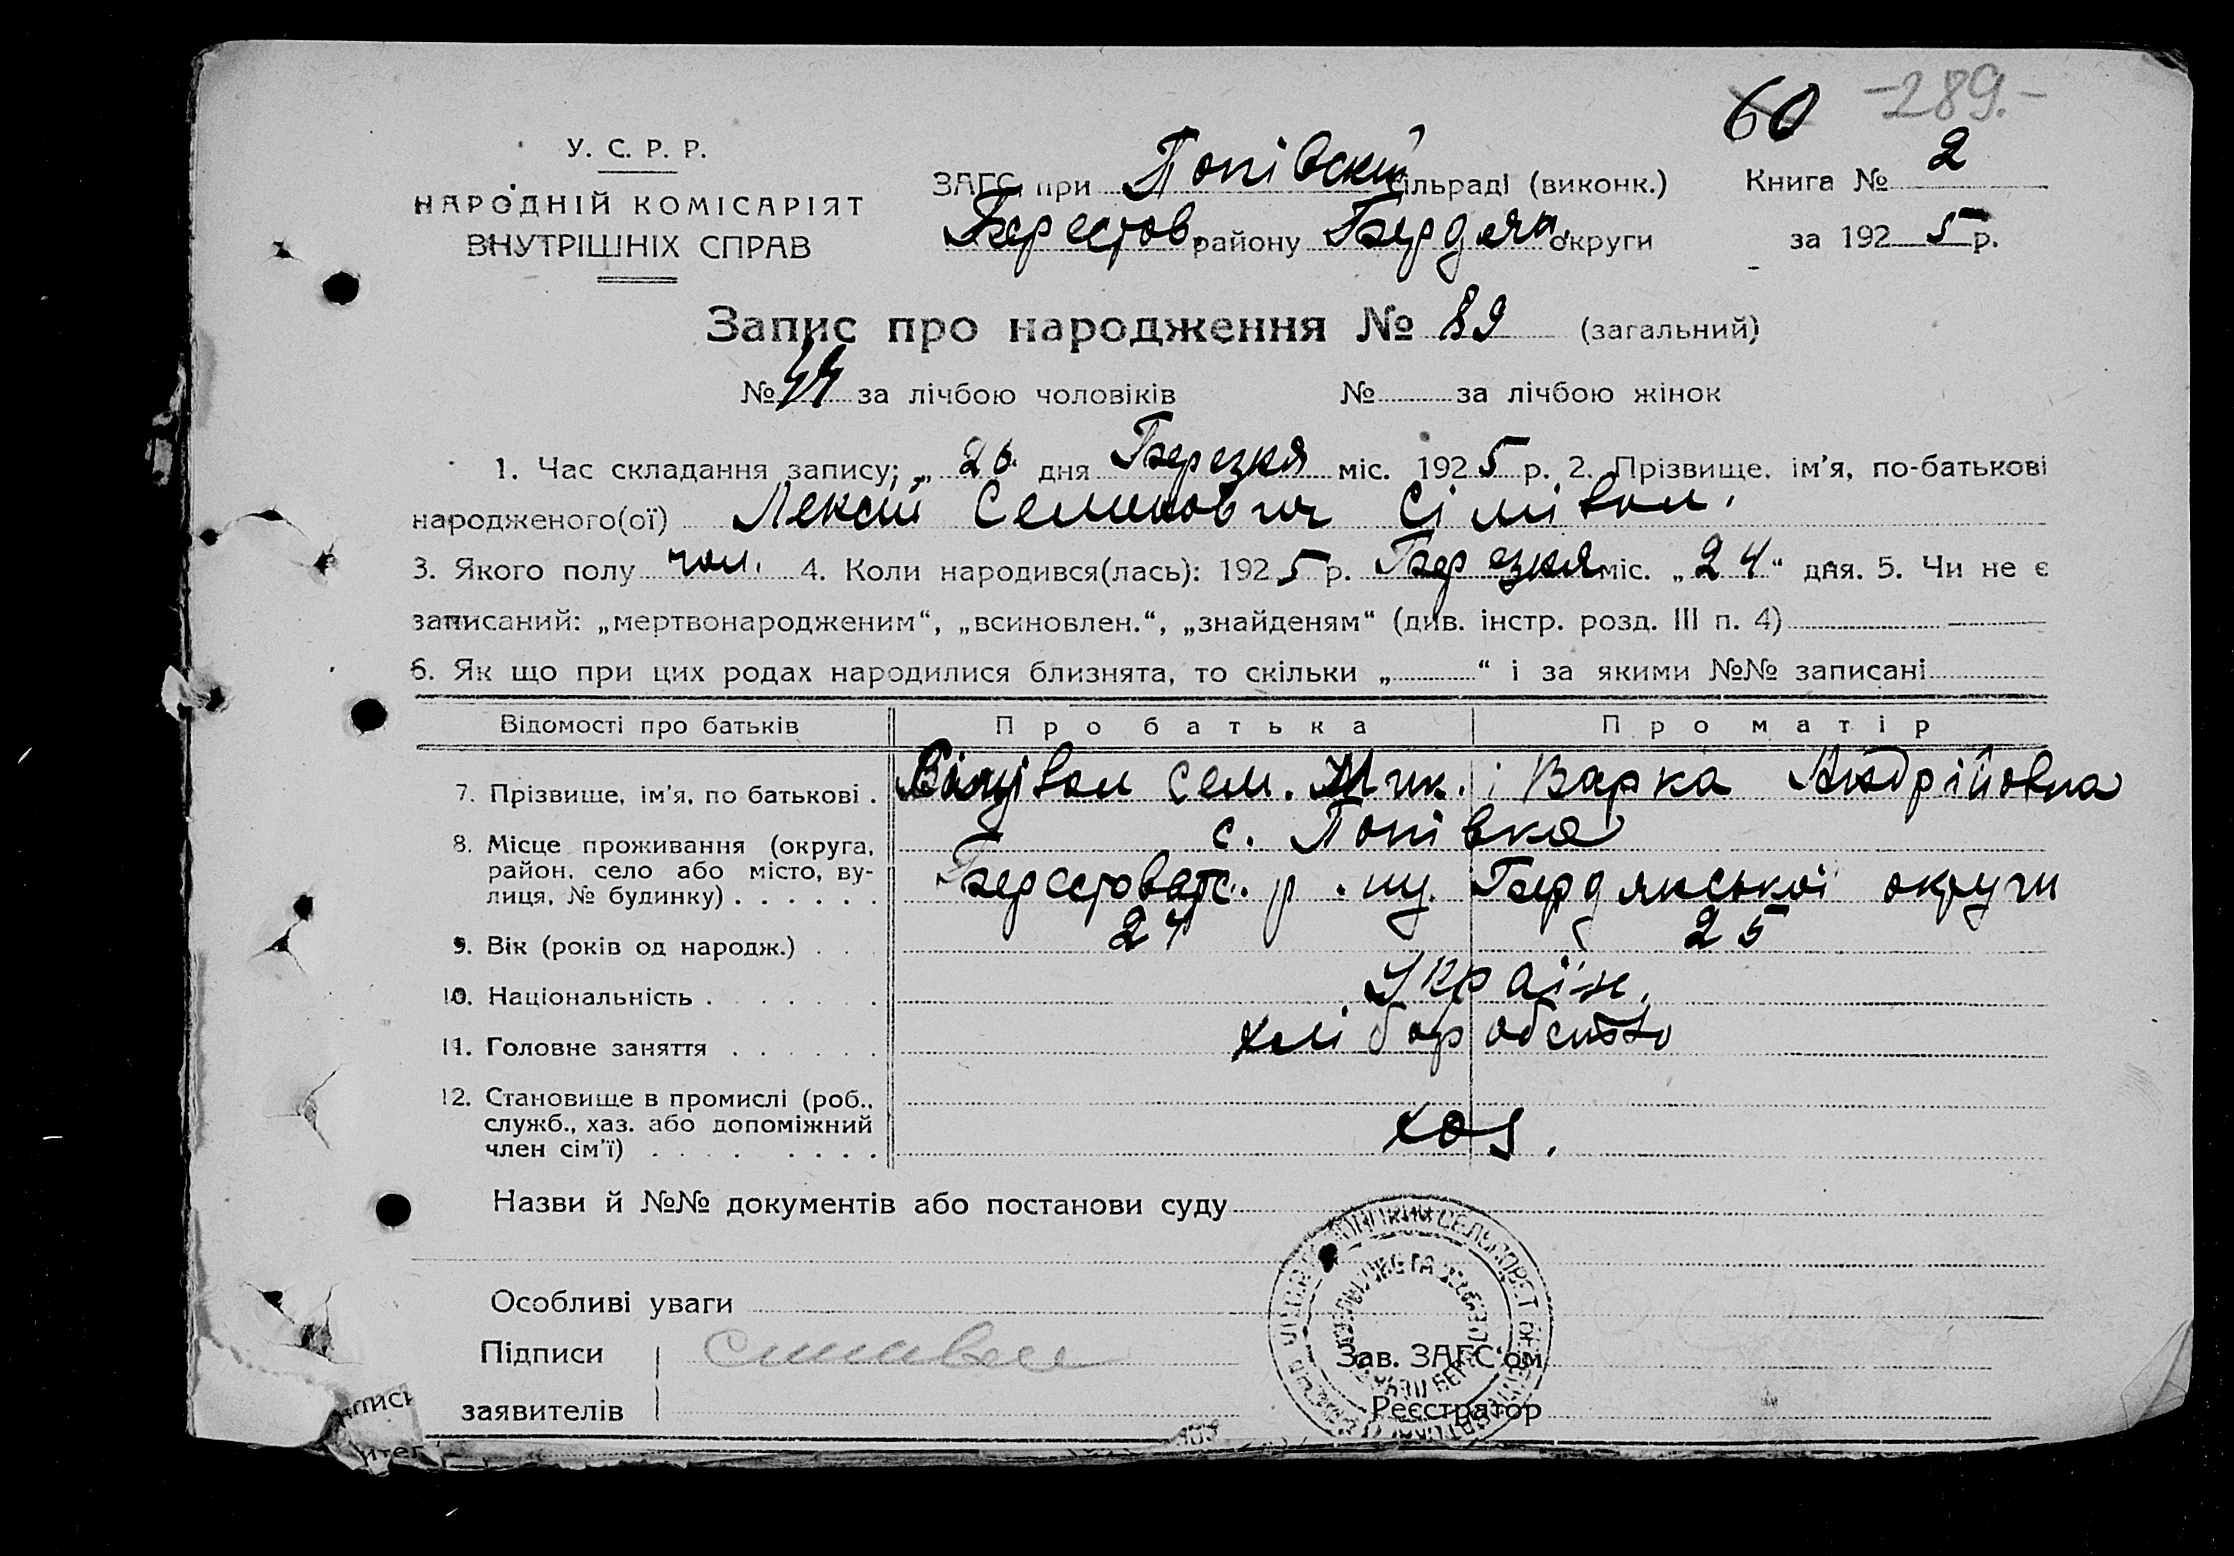 60 -289.-
У. С. Р. Р.
НАРОДНІЙ КОМІСАРІЯТ
ВНУТРІШНІХ СПРАВ
ЗАГС при Попівскій сільраді (виконк.) Книга № 2
Берестов. району Бердян. округи за 1925 р.
Запис про народження № 89 (загальний)
№ 44 за лічбою чоловіків № за лічбою жінок
1. Час складання запису; „ 26 дня Березня міс. 1925 р. 2. Прізвище, ім'я, по-батькові
народженого(ої) Лексій Семенович
3. Якого полу чол. 4. Коли народився(лась): 1925 р. Березня міс. „24“ дня. 5. Чи не є
записаний: „мертвонародженим“, „всиновлен.“, „знайденям“ (див. інстр. розд. III п. 4)
6. Як що при цих родах народилися близнята, то скільки „ “ і за якими №№ записані
Відомості про батьків Про батька Про матір
7. Прізвище, ім'я, по батькові . Сем. Мик. Варка Андрійовна
8. Місце проживання (округа, район, село або місто, вулиця, № будинку) . . . . . . с. Попівка
Берестоватс. р.ну. Бердянської округи
9. Вік (років од народж.) . . . 24 25
10. Національність . . . . . Україн.
11. Головне заняття . . . . . . хліборобство
12. Становище в промислі (роб.,
служб., хаз. або допоміжний
член сім'ї) . . . . . . . . хоз.
Назви й №№ документів або постанови суду
Особливі уваги
Підписи
Зав. ЗАГС'ом
заявителів
Реєстратор